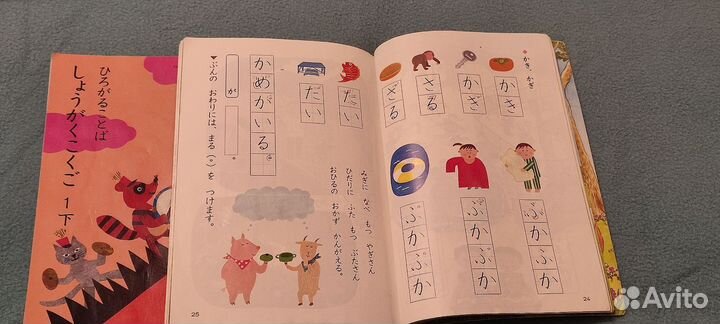 かき、かぎ
かき
かぎ
さる
ざる
ふかふか
ぶかぶか
ぷかぷか
24
たい
だい
かめがいる。
みぎに なべ もつ やぎさん
ひだりに ふた もつ ぶたさん
おひるの おかず かんがえる。
が
。
▼ぶんの おわりには、まる(。)を つけます。
25
ひろがることば
しょうがくこくご 1下
Avito